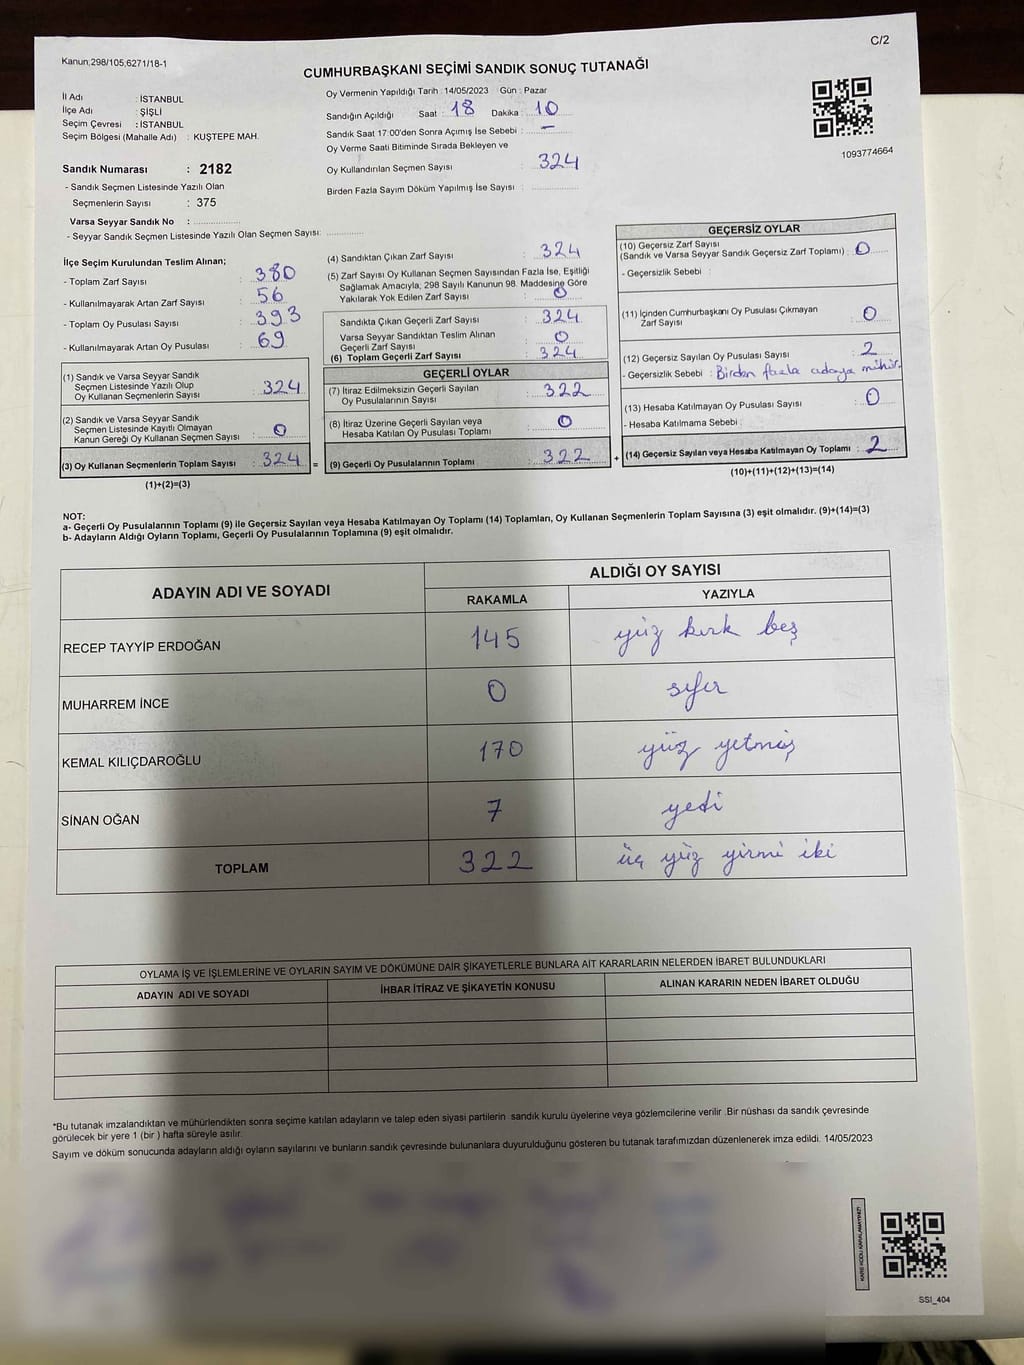 C/2
Kanun;298/105;6271/18-1
CUMHURBAŞKANI SEÇİMİ SANDIK SONUÇ TUTANAĞI
İl Adı : İSTANBUL
İlçe Adı : ŞİŞLİ
Seçim Çevresi : İSTANBUL
Seçim Bölgesi (Mahalle Adı) : KUŞTEPE MAH.
Sandık Numarası : 2182
- Sandık Seçmen Listesinde Yazılı Olan
Seçmenlerin Sayısı : 375
Varsa Seyyar Sandık No :
- Seyyar Sandık Seçmen Listesinde Yazılı Olan Seçmen Sayısı:
Oy Vermenin Yapıldığı Tarih : 14/05/2023 Gün : Pazar
Sandığın Açıldığı Saat : 18 Dakika : 10
Sandık Saat 17:00'den Sonra Açımış İse Sebebi : –
Oy Verme Saati Bitiminde Sırada Bekleyen ve
Oy Kullandırılan Seçmen Sayısı : 324
Birden Fazla Sayım Döküm Yapılmış İse Sayısı :
1093774664
İlçe Seçim Kurulundan Teslim Alınan;
- Toplam Zarf Sayısı : 380
- Kullanılmayarak Artan Zarf Sayısı : 56
- Toplam Oy Pusulası Sayısı : 393
- Kullanılmayarak Artan Oy Pusulası : 69
(1) Sandık ve Varsa Seyyar Sandık
Seçmen Listesinde Yazılı Olup
Oy Kullanan Seçmenlerin Sayısı : 324
(2) Sandık ve Varsa Seyyar Sandık
Seçmen Listesinde Kayıtlı Olmayan
Kanun Gereği Oy Kullanan Seçmen Sayısı : 0
(3) Oy Kullanan Seçmenlerin Toplam Sayısı : 324
(1)+(2)=(3)
(4) Sandıktan Çıkan Zarf Sayısı : 324
(5) Zarf Sayısı Oy Kullanan Seçmen Sayısından Fazla İse, Eşitliği
Sağlamak Amacıyla, 298 Sayılı Kanunun 98. Maddesine Göre
Yakılarak Yok Edilen Zarf Sayısı : 0
Sandıkta Çıkan Geçerli Zarf Sayısı : 324
Varsa Seyyar Sandıktan Teslim Alınan
Geçerli Zarf Sayısı : 0
(6) Toplam Geçerli Zarf Sayısı : 324
GEÇERLİ OYLAR
(7) İtiraz Edilmeksizin Geçerli Sayılan
Oy Pusulalarının Sayısı : 322
(8) İtiraz Üzerine Geçerli Sayılan veya
Hesaba Katılan Oy Pusulası Toplamı : 0
= (9) Geçerli Oy Pusulalarının Toplamı : 322
GEÇERSİZ OYLAR
(10) Geçersiz Zarf Sayısı
(Sandık ve Varsa Seyyar Sandık Geçersiz Zarf Toplamı) : 0
- Geçersizlik Sebebi :
(11) İçinden Cumhurbaşkanı Oy Pusulası Çıkmayan
Zarf Sayısı : 0
(12) Geçersiz Sayılan Oy Pusulası Sayısı : 2
- Geçersizlik Sebebi : Birden fazla adaya mühür.
(13) Hesaba Katılmayan Oy Pusulası Sayısı : 0
- Hesaba Katılmama Sebebi :
+ (14) Geçersiz Sayılan veya Hesaba Katılmayan Oy Toplamı : 2
(10)+(11)+(12)+(13)=(14)
NOT:
a- Geçerli Oy Pusulalarının Toplamı (9) ile Geçersiz Sayılan veya Hesaba Katılmayan Oy Toplamı (14) Toplamları, Oy Kullanan Seçmenlerin Toplam Sayısına (3) eşit olmalıdır. (9)+(14)=(3)
b- Adayların Aldığı Oyların Toplamı, Geçerli Oy Pusulalarının Toplamına (9) eşit olmalıdır.
ADAYIN ADI VE SOYADI ALDIĞI OY SAYISI
RAKAMLA YAZIYLA
RECEP TAYYİP ERDOĞAN 145 yüz kırk beş
MUHARREM İNCE 0 sıfır
KEMAL KILIÇDAROĞLU 170 yüz yetmiş
SİNAN OĞAN 7 yedi
TOPLAM 322 üç yüz yirmi iki
OYLAMA İŞ VE İŞLEMLERİNE VE OYLARIN SAYIM VE DÖKÜMÜNE DAİR ŞİKAYETLERLE BUNLARA AİT KARARLARIN NELERDEN İBARET BULUNDUKLARI
ADAYIN ADI VE SOYADI İHBAR İTİRAZ VE ŞİKAYETİN KONUSU ALINAN KARARIN NEDEN İBARET OLDUĞU
*Bu tutanak imzalandıktan ve mühürlendikten sonra seçime katılan adayların ve talep eden siyasi partilerin sandık kurulu üyelerine veya gözlemcilerine verilir .Bir nüshası da sandık çevresinde
görülecek bir yere 1 (bir ) hafta süreyle asılır.
Sayım ve döküm sonucunda adayların aldığı oyların sayılarını ve bunların sandık çevresinde bulunanlara duyurulduğunu gösteren bu tutanak tarafımızdan düzenlenerek imza edildi. 14/05/2023
KARE KODU KARALAMAYINIZ!
SSI_404